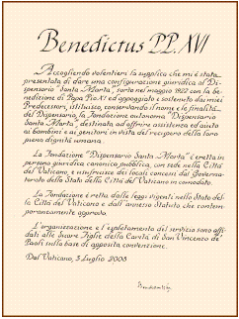 Benedictus P.P. XVI
Accogliendo volentieri la supplica che mi è stata
presentata di dare una configurazione giuridica al Di-
spensario "Santa Marta", sorto nel maggio 1922 con la be-
nedizione di Papa Pio XI ed appoggiato e sostenuto dai miei
Predecessori, istituisco, conservandone il nome e le finalità
del Dispensario, la Fondazione autonoma "Dispensario
Santa Marta", destinata ad offrire assistenza ed aiuto
ai bambini e ai genitori in vista del recupero della loro
piena dignità umana.
La Fondazione "Dispensario Santa Marta" è eretta in
persona giuridica canonica pubblica, con sede nella Città
del Vaticano, e usufruisce dei locali concessi dal Governa-
torato dello Stato della Città del Vaticano in comodato.
La Fondazione è retta dalle leggi vigenti nello Stato del-
la Città del Vaticano e dall'annesso statuto che contem-
poraneamente approvo.
L'organizzazione e l'espletamento del servizio sono affi-
dati alle Suore Figlie della Carità di San Vincenzo de'
Paoli sulla base di apposita convenzione.
Dal Vaticano, 3 Luglio 2008